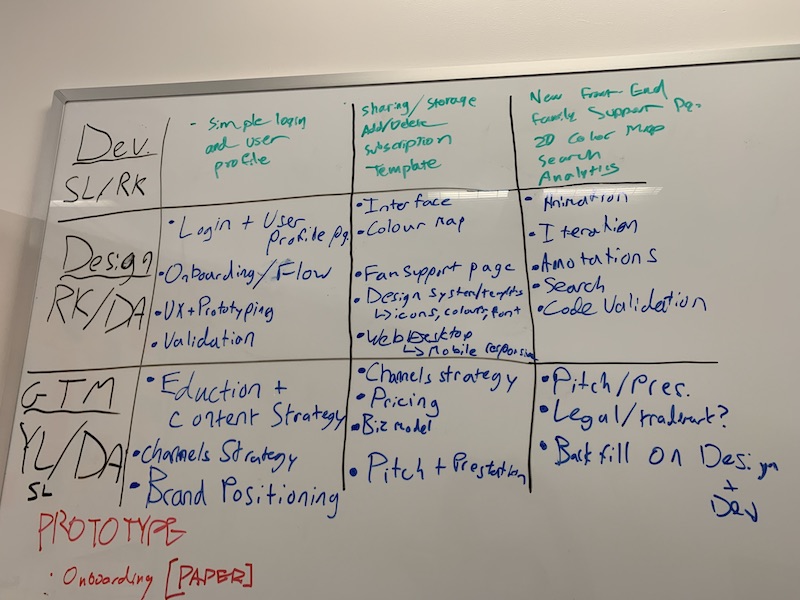 Dev.
SL/RK
- Simple login
and user
profile
Sharing/Storage
Add/Delete
Subscription
Template
New Front End
Family Support Pg.
2D Color Map
Search
Analytics
Design
RK/DA
• Login + User
profile pg.
• Onboarding/Flow
• UX + Prototyping
• Validation
• Interface
• Colour Map
• Fan Support page
• Design system/templts
↳ icons, colour, font
• Web Desktop
↳ Mobile responsive
• Animation
• Iteration
• Anotations
• Search
• Code Validation
GTM
YL/DA
SL
• Eduction +
Content Strategy
• Channels Strategy
• Brand Positioning
• Channels strategy
• Pricing
• Biz Model
• Pitch + Presentation
• Pitch/Pres.
• Legal/trademark?
• Backfill on Design
+
Dev
PROTOTYPE
: Onboarding [PAPER]